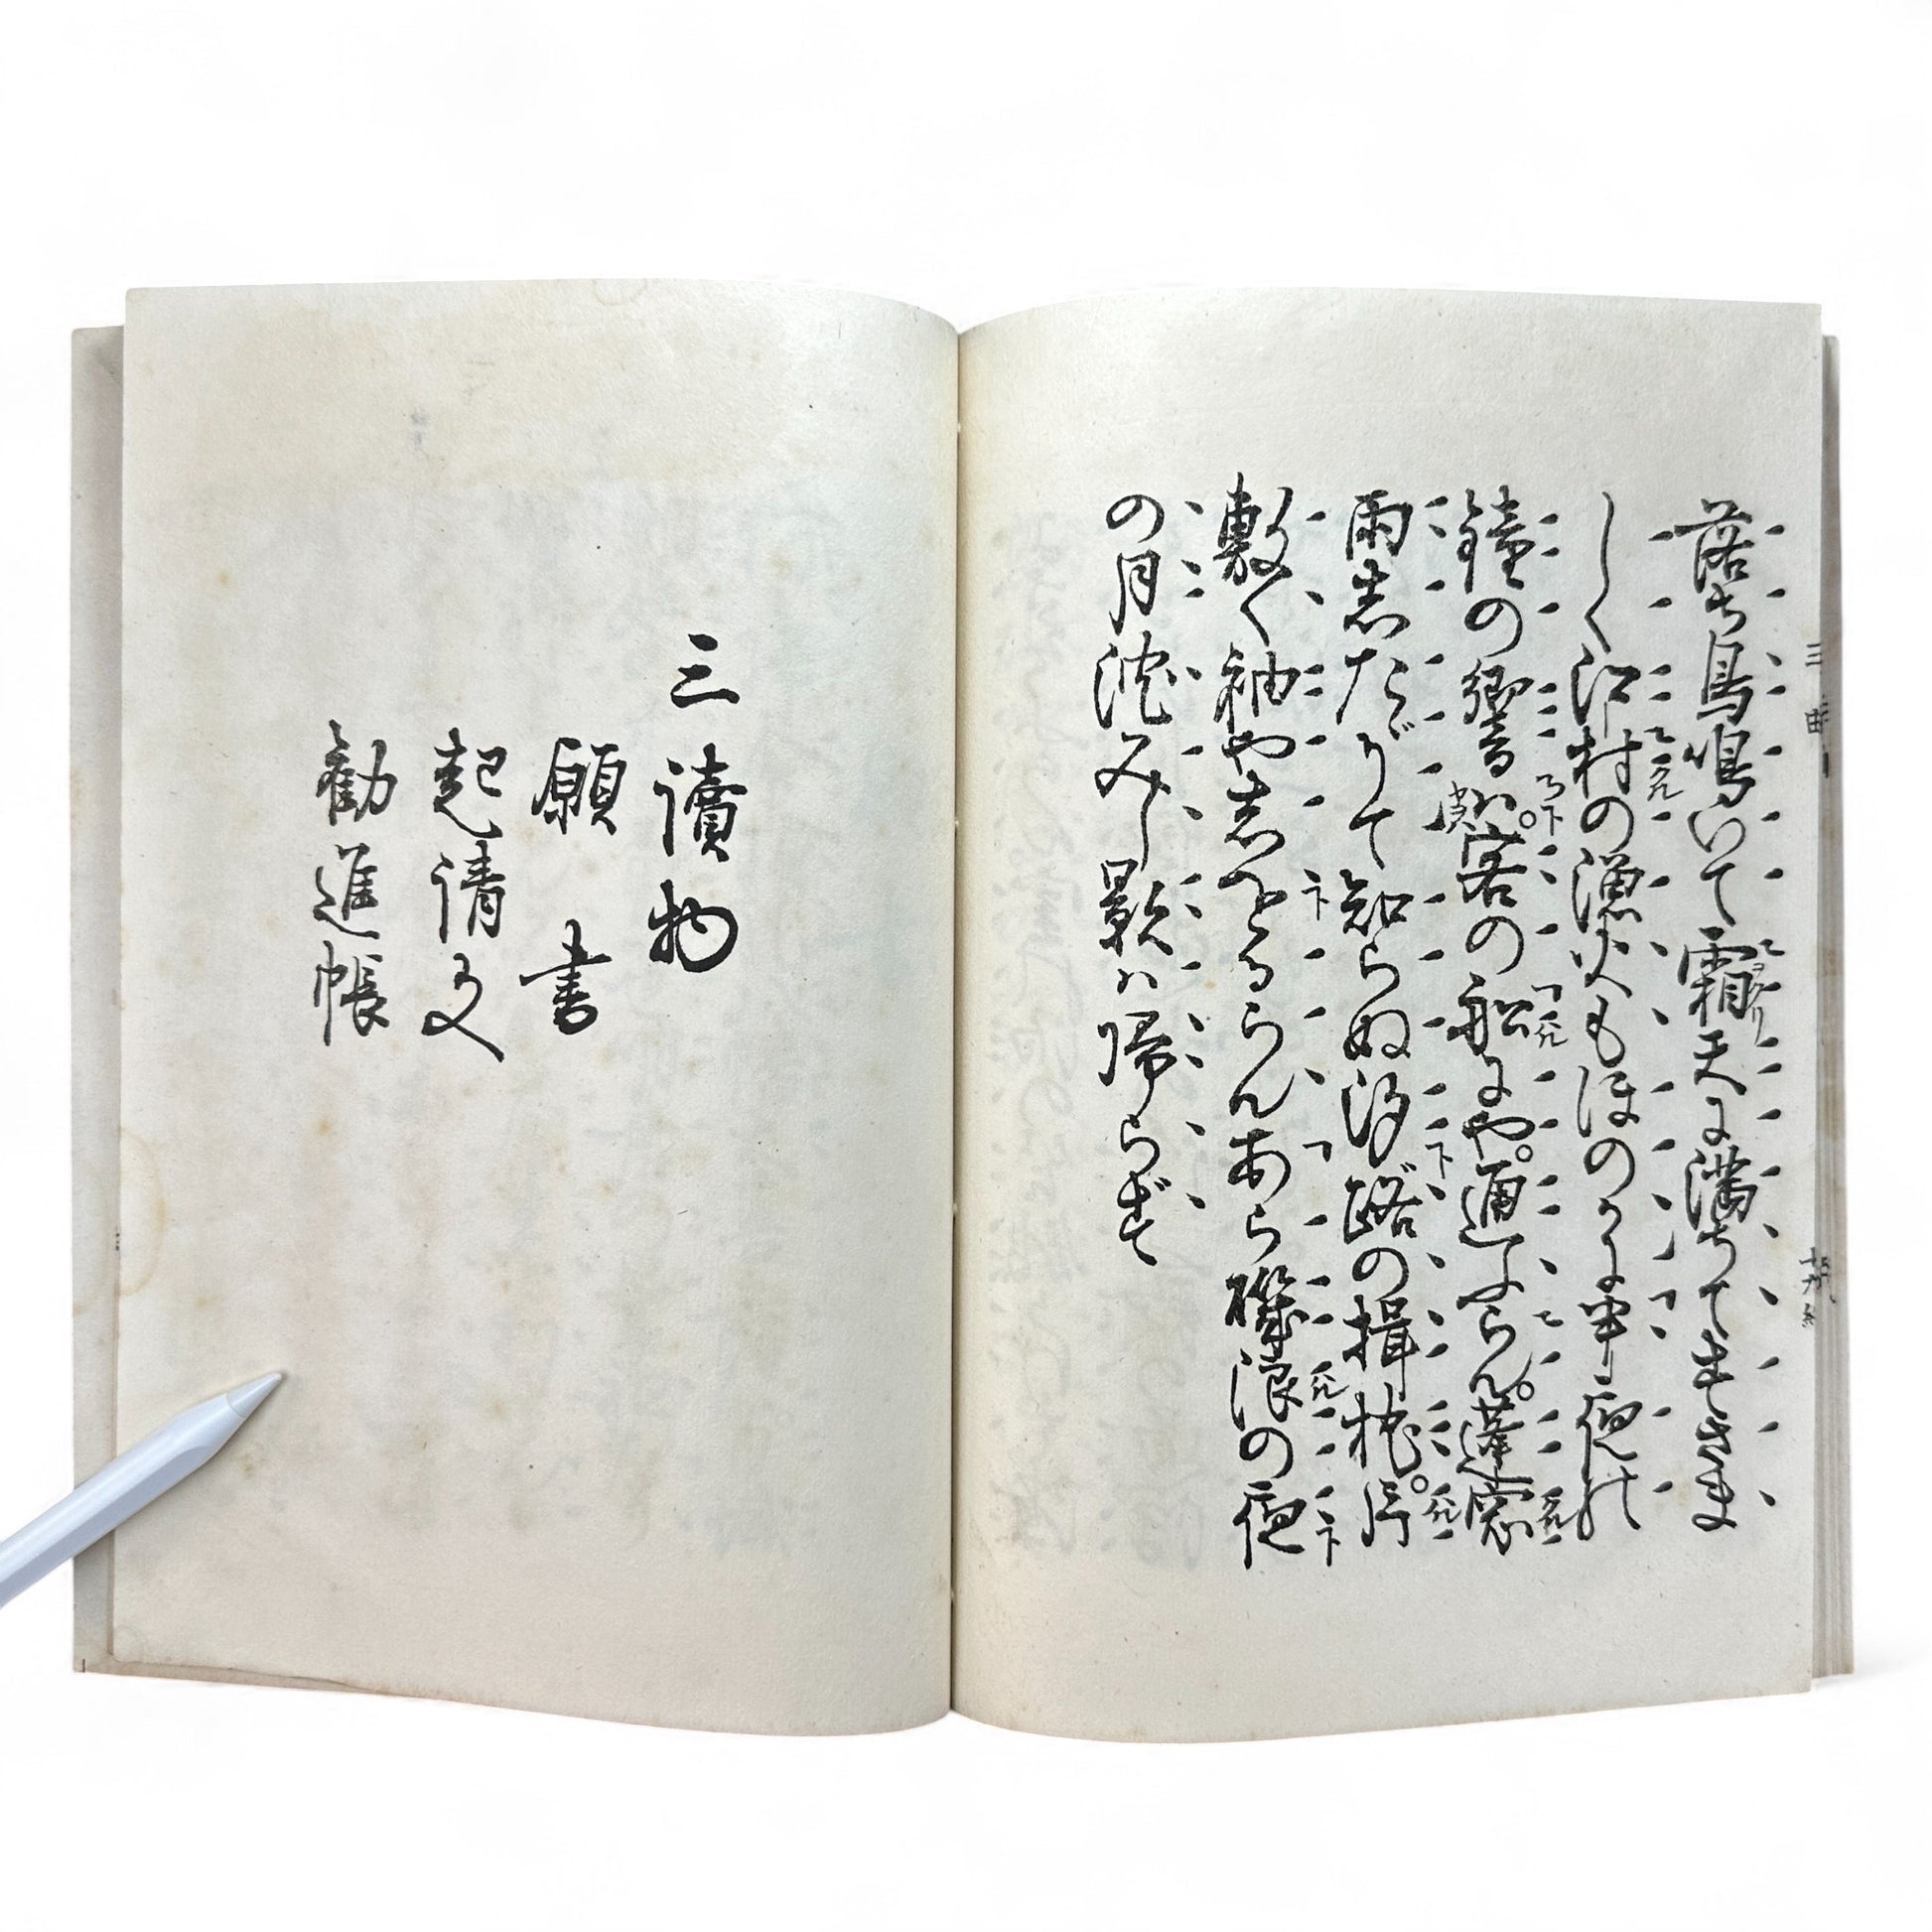 落ち鳥鳴いて霜天に満ちてすさま
しく江村の漁火もほのかに半夜の
鐘の響ハ。客の船にや。通ふらん。蓬窓
雨志たゞりて知らぬ汐路の楫枕。片
敷く袖や志をるらんあら磯浪の夜
の月沈みし影ハ帰らず
三讀物
願書
起請文
勧進帳